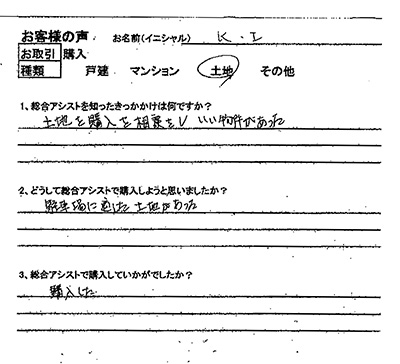 お客様の声 お名前(イニシャル) K.I
お取引 購入
種類 戸建 マンション 土地 その他
1、総合アシストを知ったきっかけは何ですか?
土地を購入を相談をし いい物件があった
2、どうして総合アシストで購入しようと思いましたか?
駐車場に適した土地があった
3、総合アシストで購入していかがでしたか?
購入した